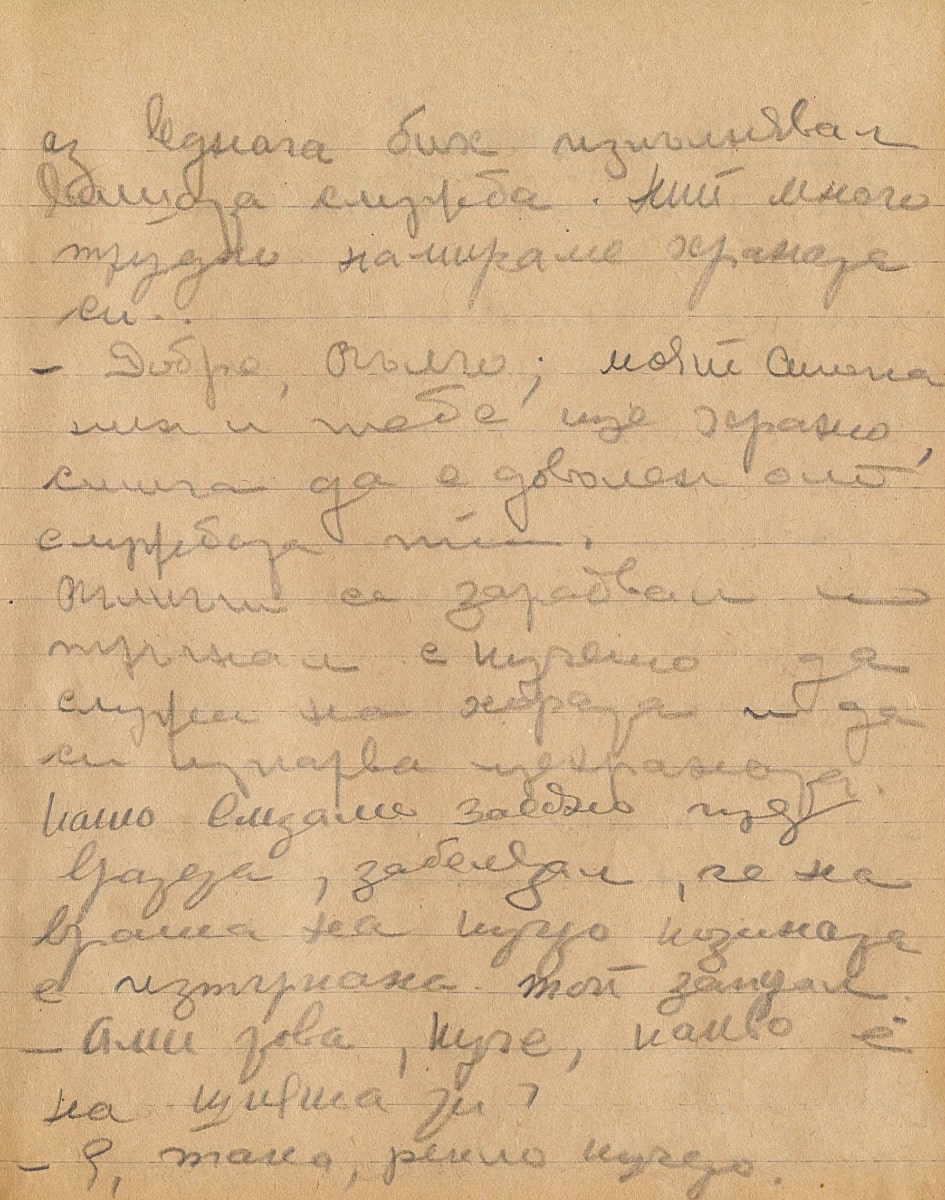 аз веднага бих изпълнявал
вашата служба. Ний много
трудно намираме храната
си..
– Добре, Вълчо; моят стопа
нин и тебе ще храни,
стига да е доволен от
службата ти.
Вълчи се зарадвал и
тръгнал с кучето да
служи на хората и да
си изкарва прехраната.
Като влизали заедно пред
града, забелязал, че на
врата на кучто козината
е изтъркана. Той запитал.
– Ами това, куче, какво е
на шията ти?
– Е, така, рекло кучето.